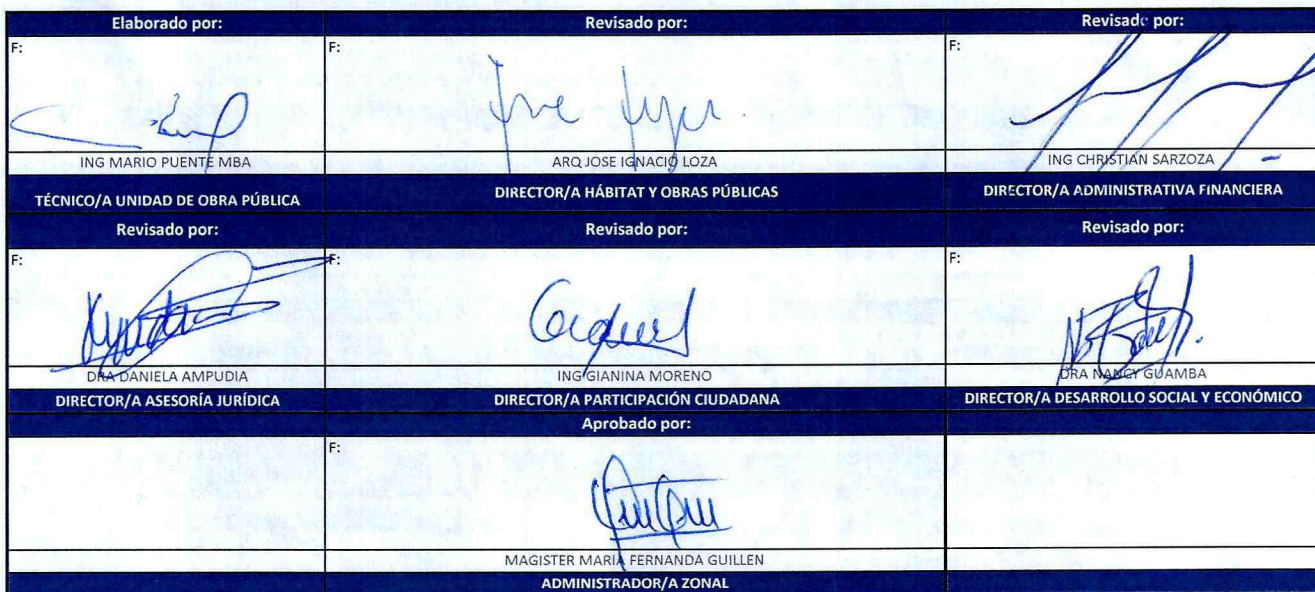 Elaborado por: Revisado por: Revisado por:
F: F: F:
ING MARIO PUENTE MBA ARQ JOSE IGNACIO LOZA ING CHRISTIAN SARZOZA
TÉCNICO/A UNIDAD DE OBRA PÚBLICA DIRECTOR/A HÁBITAT Y OBRAS PÚBLICAS DIRECTOR/A ADMINISTRATIVA FINANCIERA
Revisado por: Revisado por: Revisado por:
F: F: F:
DRA DANIELA AMPUDIA ING GIANINA MORENO DRA NANCY GUAMBA
DIRECTOR/A ASESORÍA JURÍDICA DIRECTOR/A PARTICIPACIÓN CIUDADANA DIRECTOR/A DESARROLLO SOCIAL Y ECONÓMICO
Aprobado por:
F:
MAGISTER MARIA FERNANDA GUILLEN
ADMINISTRADOR/A ZONAL